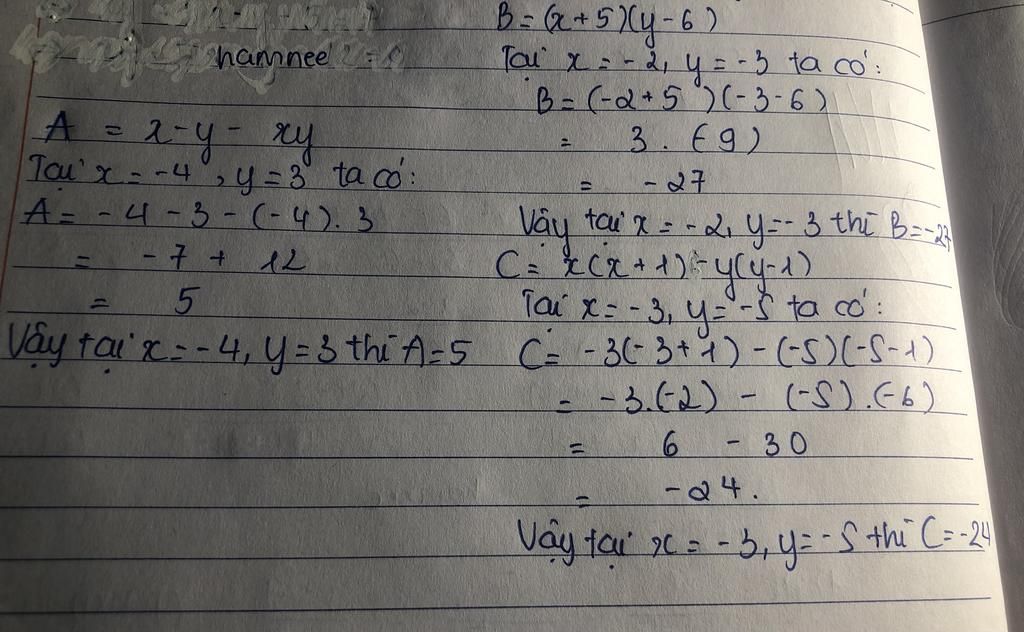 hamnee
A = x-y- xy
Tại x = -4, y = 3 ta có:
A = -4-3-(-4).3
= -7 + 12
= 5
Vậy tại x = -4, y = 3 thì A = 5
B = (x+5)(y-6)
Tại x = -2, y = -3 ta có:
B = (-2+5)(-3-6)
= 3. (-9)
= -27
Vậy tại x = -2, y = -3 thì B = -27
C = x(x+1) - y(y-1)
Tại x = -3, y = -5 ta có:
C = -3(-3+1) - (-5)(-5-1)
= -3.(-2) - (-5).(-6)
= 6 - 30
= -24.
Vậy tại x = -3, y = -5 thì C = -24